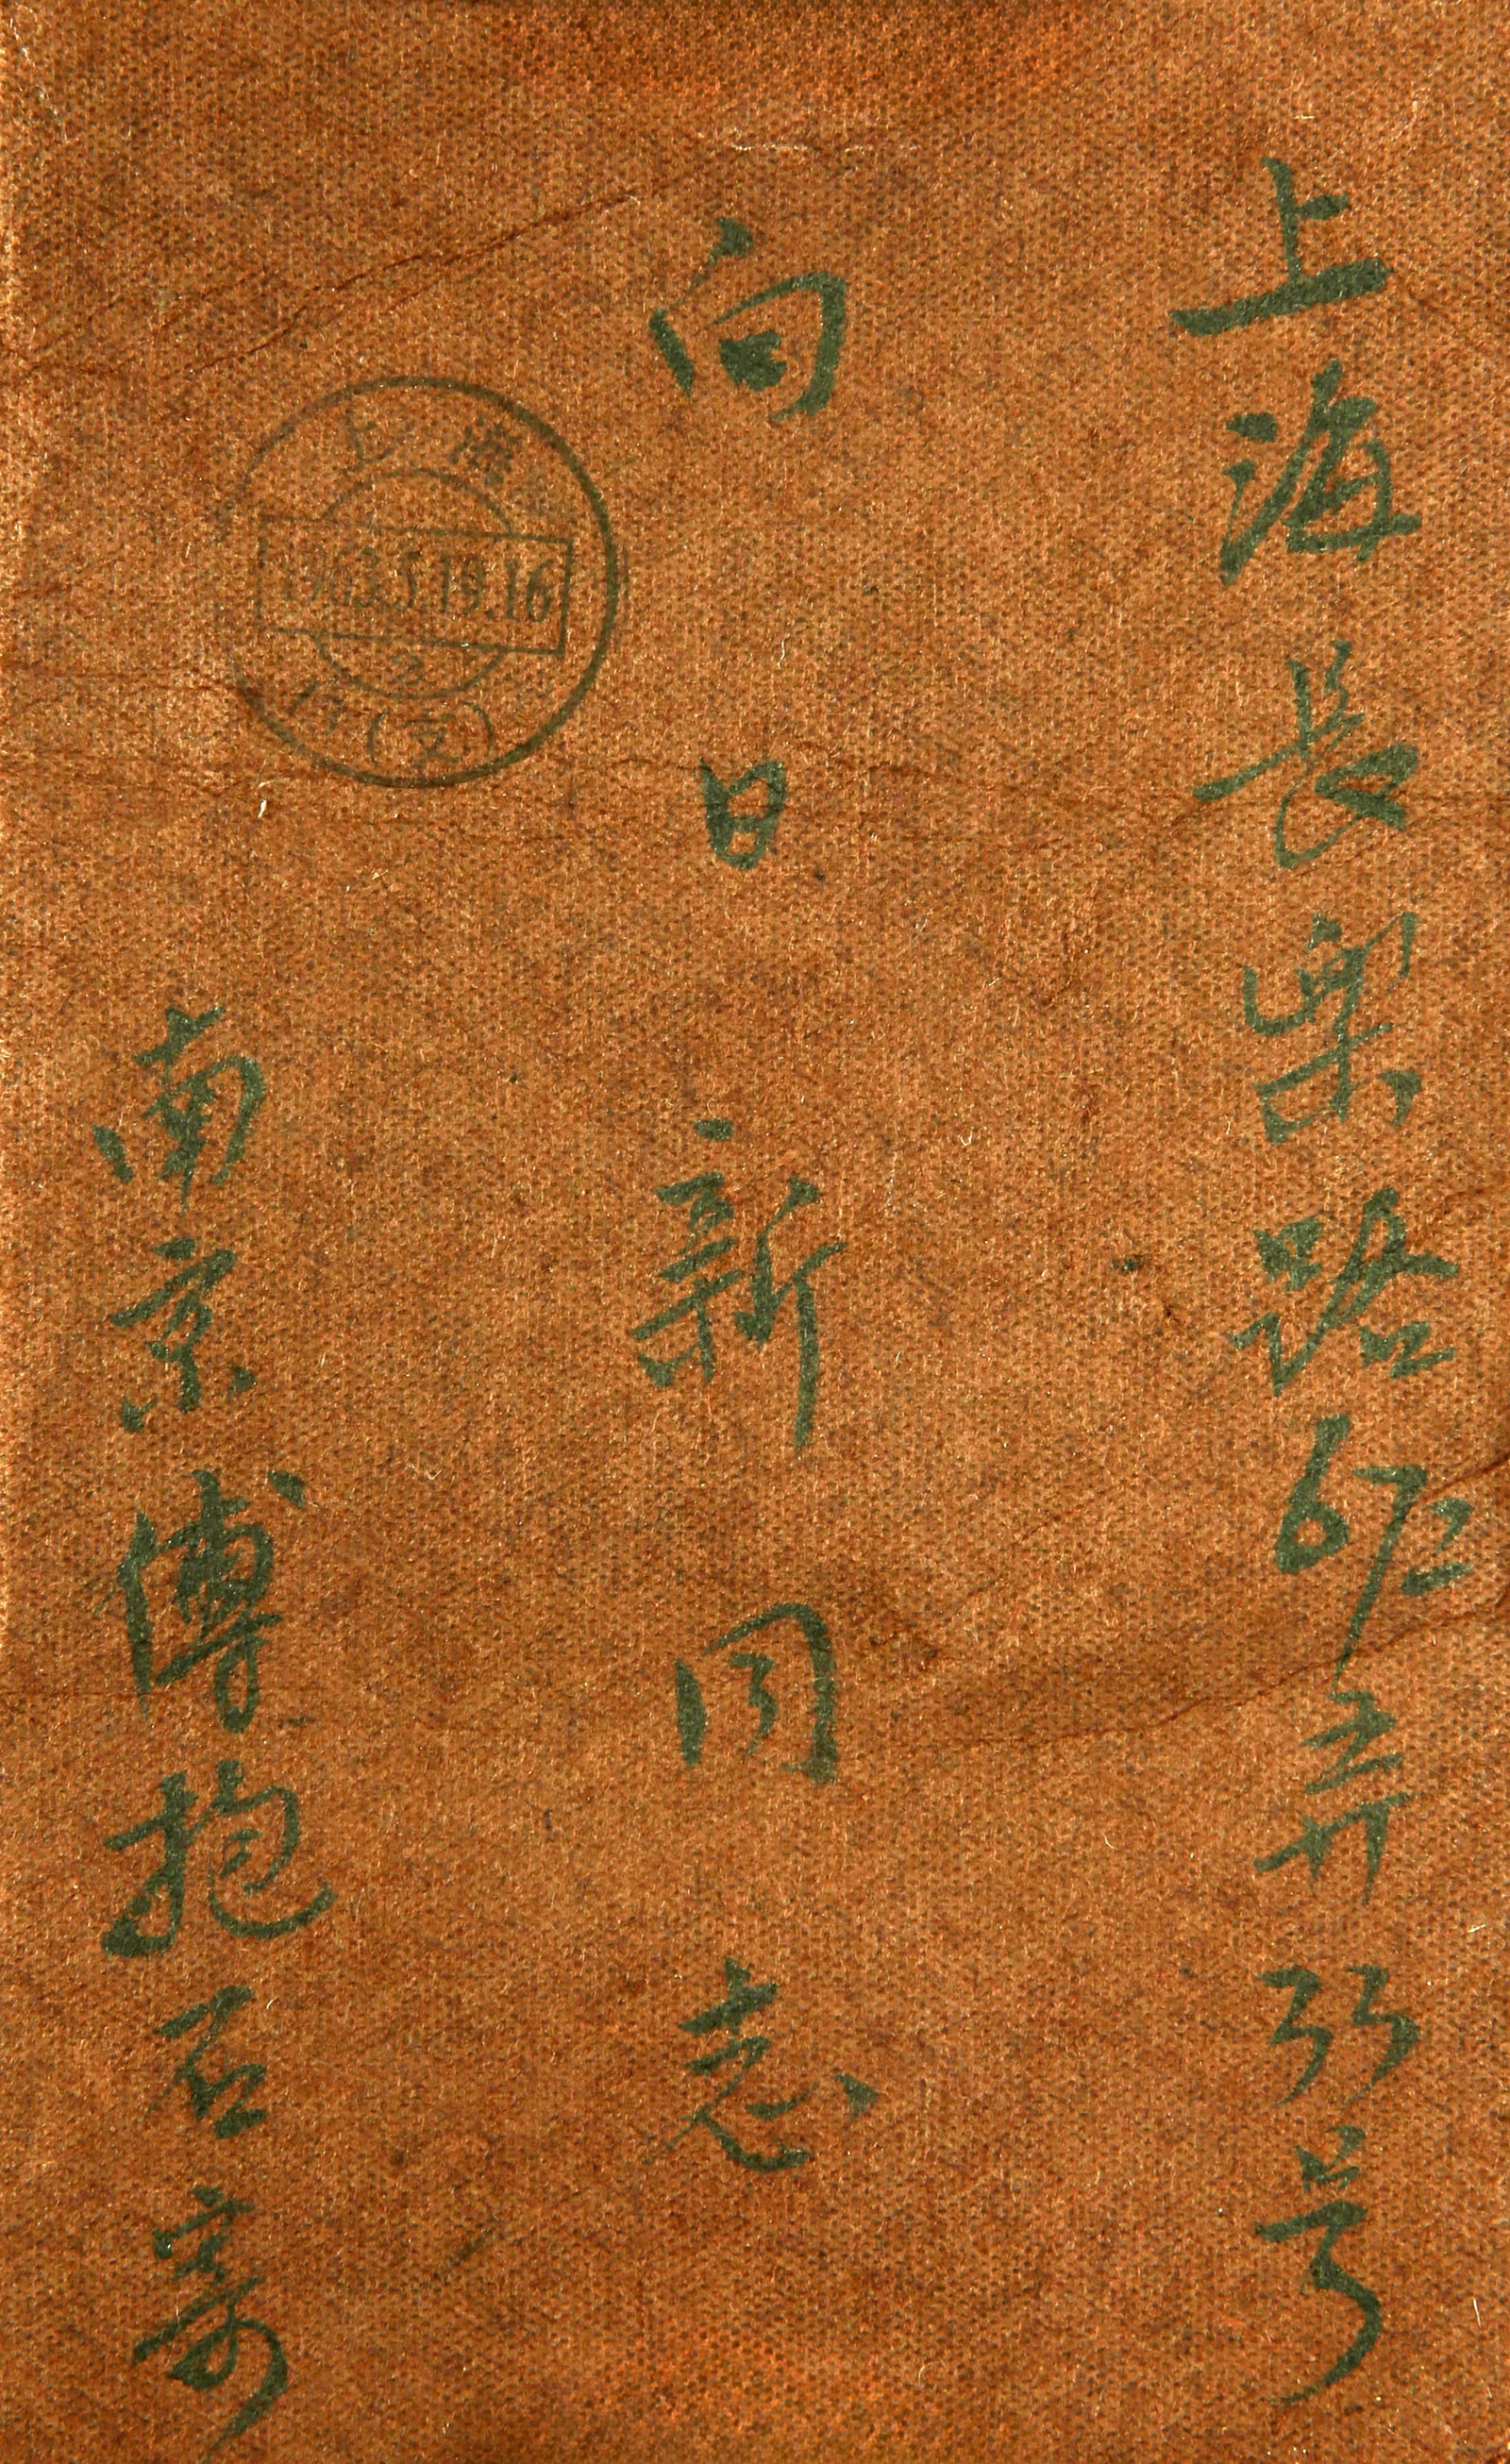 上海長樂路672弄33号
向日新同志
南京傅抱石寄
上海
1963.5.19.16
2
(支)